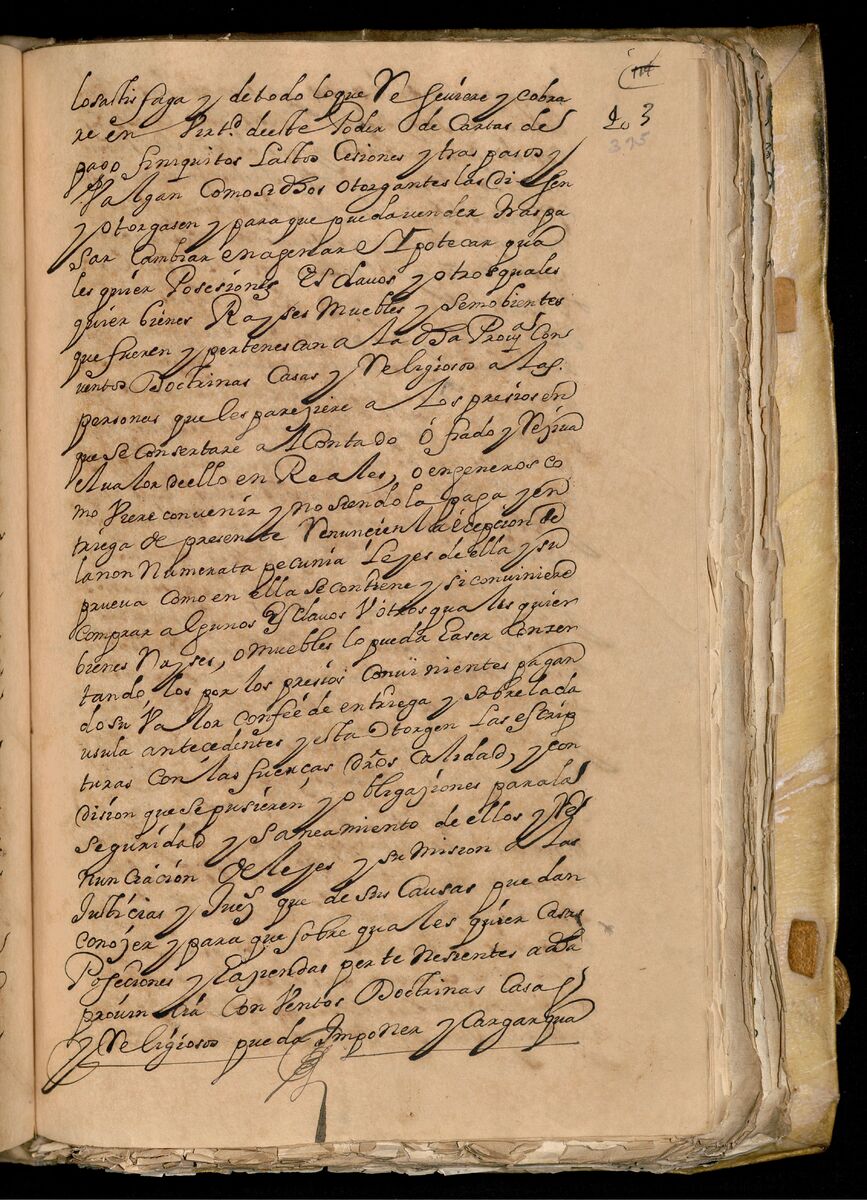 103
375
losatisfaga y detodo loque Re seuiere y cobra
re en Virt.d deeste Poder de Cartas de
pago finiquitos Lastos Cesiones y tras pasos y
Valgan comosi dhos otorgantes las diesen
y otorgasen y para que pueda vender traspa
sar Cambiar enagenar e Ypotecar qua
les quier Posesiones Esclavos y otros quales
quier bienes Rayses Muebles y semobientes
que fueren y pertenescan a La dha Prou.a Con
ventos Doctrinas Casas y Religiosos a Las
personas que les paresiere a Los presios en
que se consertare al Contado ó fiado y Resiua
el ualor deello en Reales, o en generos co
mo Viere convenir y no siendo la paga y en
triega de presente Renuncien la esepcion de
la non Numerata pecunia Leyes de ella y su
prueva como en ella se contiene y si conviniere
comprar algunos Esclavos V otros quales quier
bienes Rayses, o muebles lo pueda Easer Conser
tando, los por los presios Conuinientes pagan
do su Valor con feé de entriega y sobre la cla
usula antecedentes y esta Otorgen Las escrip
turas con las fuerças dros Calidad, y con
dision que se pusieren, y obligasiones para la
seguridad y Saneamiento de ellos y Re
nunciasion de leyes y su mision a Las
Justicias y Jues que de sus Causas puedan
conoser y para que sobre quales quier Casas
Poseciones y Easiendas perte nesientes a dha
prouinsia Conventos Doctrinas Casas
y Religiosos pueda Imponer y Cargar qua